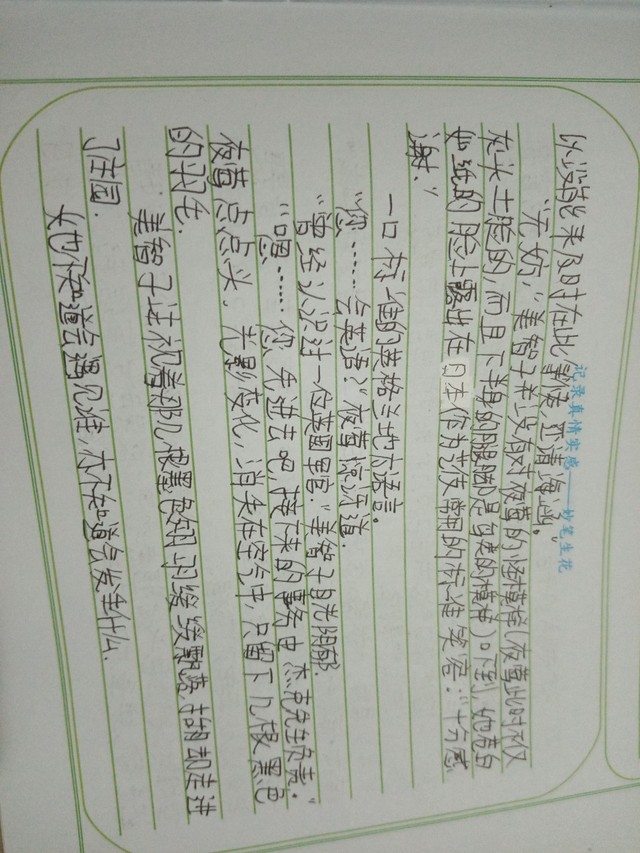 记录真情实感——妙笔生花
外没能来及时在此迎接，还请海涵。”
“无妨，”美智子并没有对夜莺的怪模样（夜莺此时不仅
灰头土脸的，而且下半身的腿脚是鸟类的模样）吓到，她亮白
如纸的脸上露出在日本作为艺伎常用的标准笑容：“十分感
谢。”
一口标准的英格兰地方语言。
“您……会英语？”夜莺惊讶道。
“曾经认识过一位英国军官。”美智子目光阴郁。
“嗯……您先进去吧，接下来的事务由杰克先生负责。”
夜莺点点头，光影变化，消失在空气中，只留下几根黑色
的羽毛。
美智子注视着那几根黑色钢羽缓缓飘落，抬脚走进
了庄园。
她不知道会遇见谁，亦不知道会发生什么。